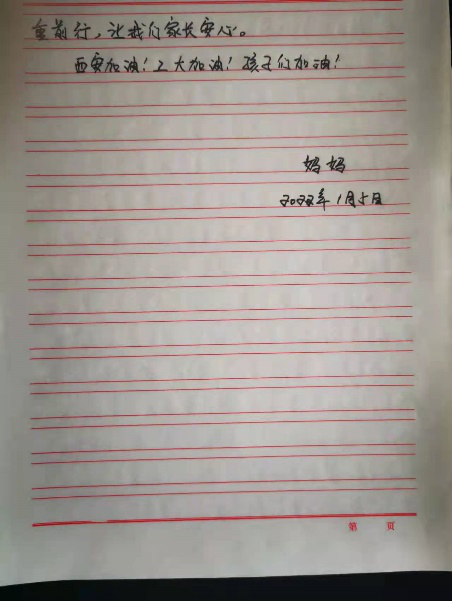 重前行，让我们家长安心。
西安加油！工大加油！孩子们加油！
妈妈
2022年1月5日
第 页